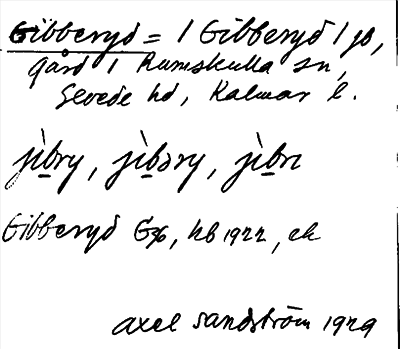 Gibberyd = 1 Gibberyd 1 jb,
gård i Rumskulla sn,
Sevede hd, Kalmar l.
jìbry, jìbəry, jìbrı
Gibberyd Gx, kb 1922, ek
Axel Sandström 1929